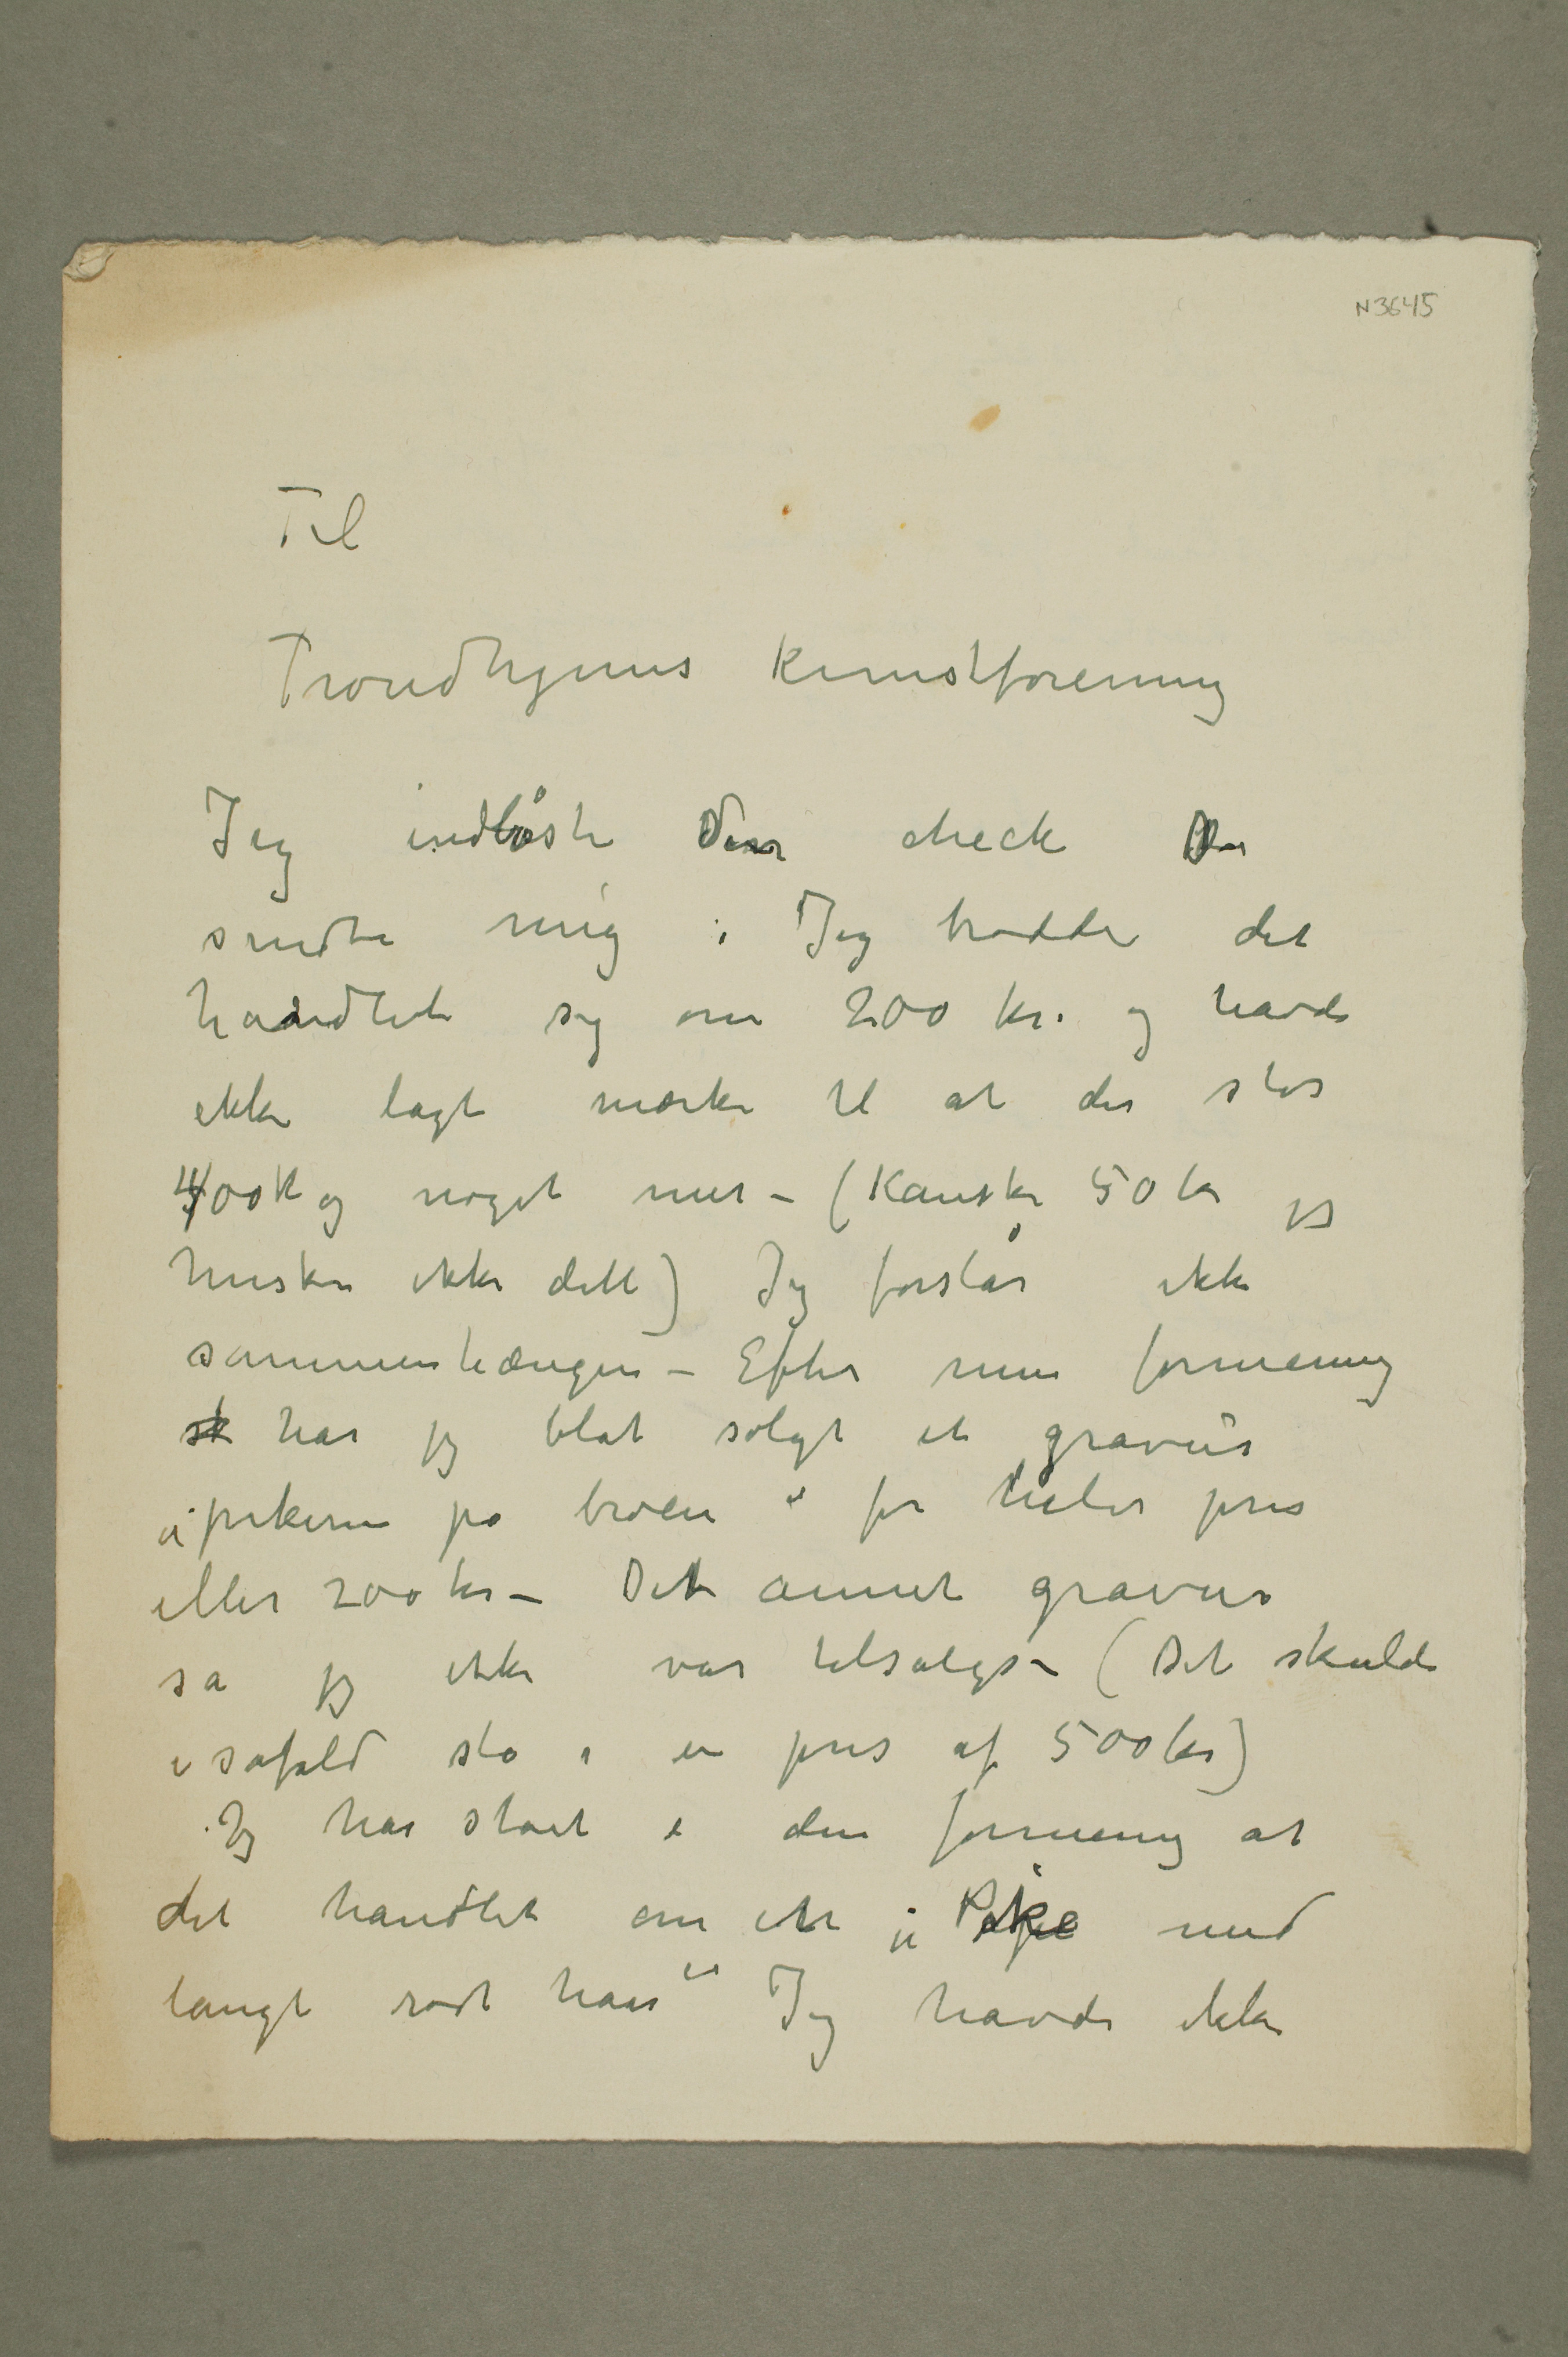 N3645
Til
Trondhjems Kunstforening
Jeg indløste den check De
sendte mig . Jeg trodde det
handlet sig om 200 kr. og havde
ikke lagt mærke til at der stod
400 kr og noget mer – (Kanske 50 kr jeg
husker ikke dett) Jeg forstår ikke
sammenhængen – Efter min formening
har jeg blot solgt et gravür
„pikerne på broen“ for heler pris
eller 200 kr – Det annet gravür
sa jeg ikke var tilsalgs – (Det skulde
isåfald stå i en pris af 500 kr)
Jeg har stået i den formening at
det handlet om et „Pike med
langt rødt haar“ Jeg havde ikke